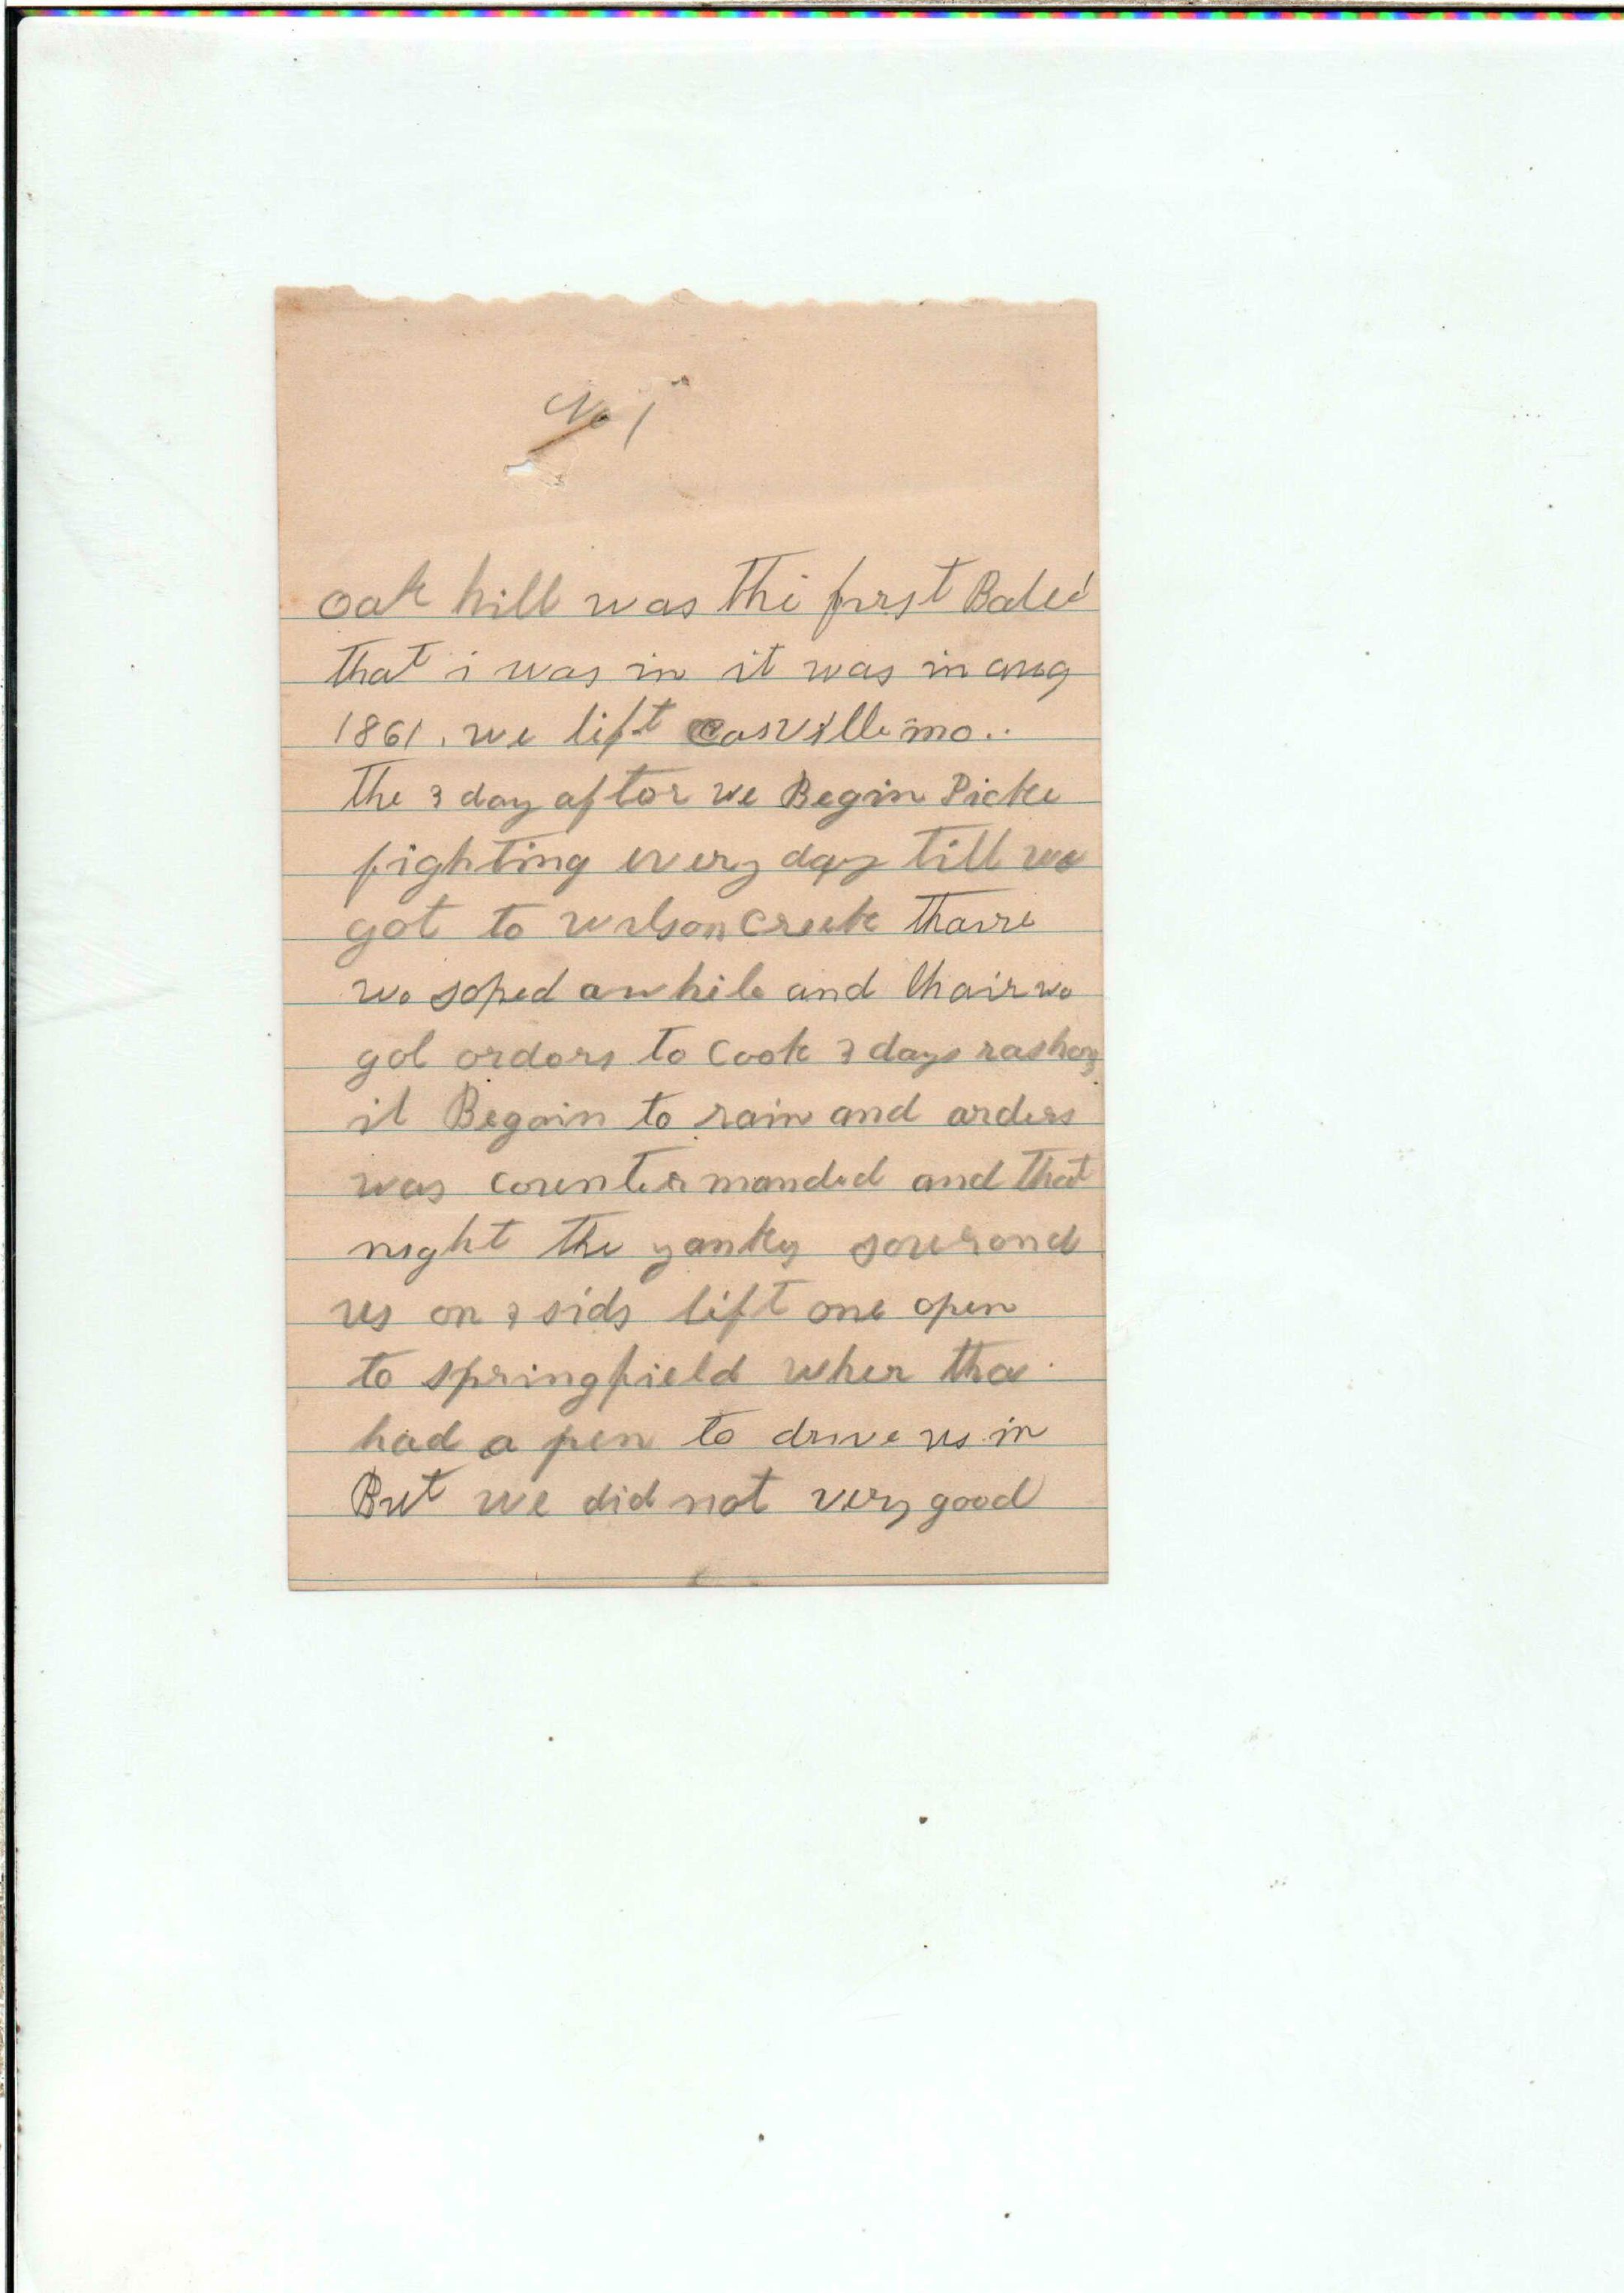 No 1
oak hill was the first
that i was in it was in aug
1861. we lift casville mo..
The 3 day after we Begin Picke
fighting every day till we
got to wilson creek thaire
we soped awhile and thair we
got orders to cook 3 days rashons
it Begain to rain and orders
was countermanded and that
night the yanky sourond
us on 3 sids lift one open
to springfield wher tha
had a pen to drive us in
But we did not very good